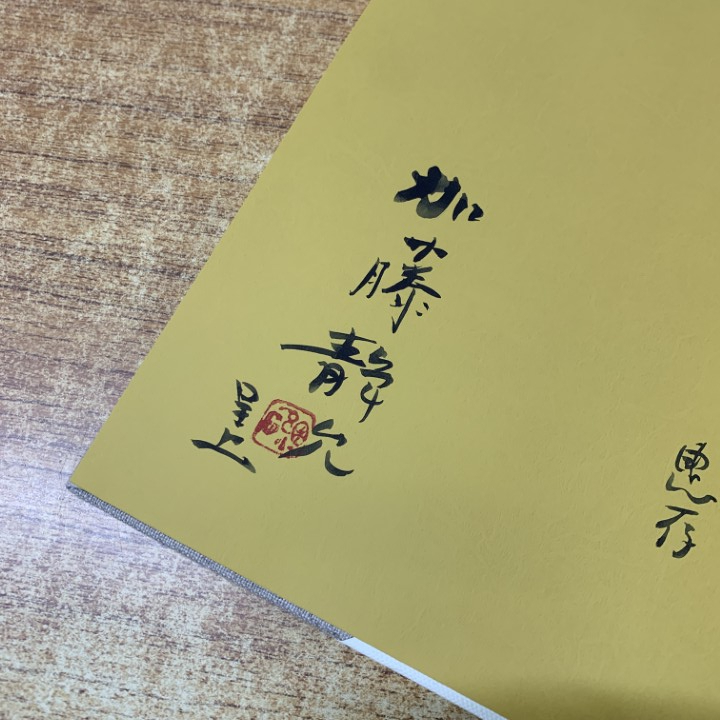 恵存
加藤靜允
呈上